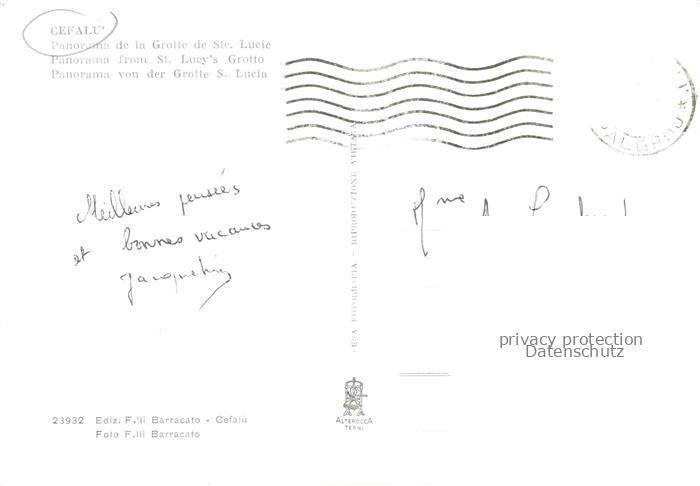 CEFALU'
Panorama de la Grotte de Ste. Lucie
Panorama from St. Lucy's Grotto
Panorama von der Grotte S. Lucia
PALERMO
Meilleures pensées
et bonnes vacances
Mme
VERA FOTOGRAFIA - RIPRODUZIONE VIETATA
privacy protection
Datenschutz
23932 Ediz. F.lli Barracato - Cefalù
Foto F.lli Barracato
ALTEROCCA
TERNI